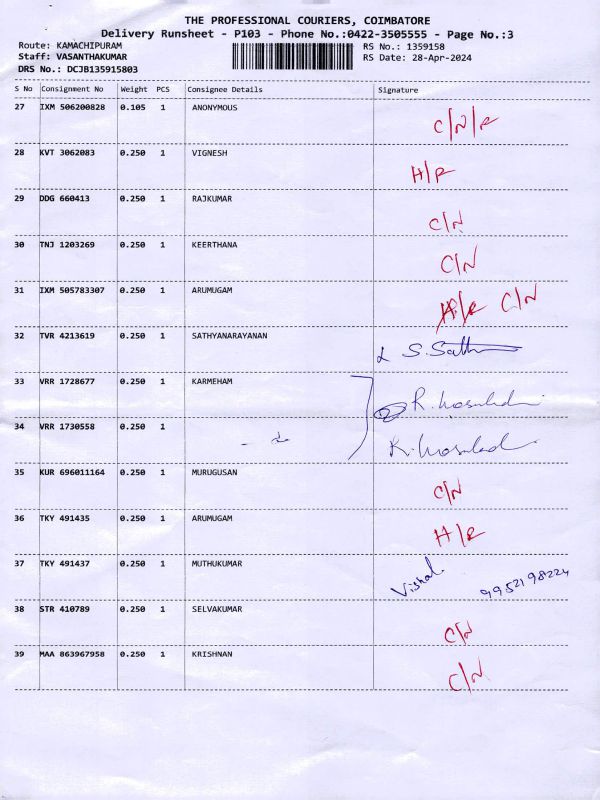 THE PROFESSIONAL COURIERS, COIMBATORE
Delivery Runsheet - P103 - Phone No.:0422-3505555 - Page No.:3
Route: KAMACHIPURAM RS No.: 1359158
Staff: VASANTHAKUMAR RS Date: 28-Apr-2024
DRS No.: DCJB135915803
S No Consignment No Weight PCS Consignee Details Signature
27 IXM 506200828 0.105 1 ANONYMOUS C/N/R
28 KVT 3062083 0.250 1 VIGNESH H/R
29 DDG 660413 0.250 1 RAJKUMAR C/N
30 TNJ 1203269 0.250 1 KEERTHANA C/N
31 IXM 505783307 0.250 1 ARUMUGAM H/R C/N
32 TVR 4213619 0.250 1 SATHYANARAYANAN S. Sath
33 VRR 1728677 0.250 1 KARMEHAM
34 VRR 1730558 0.250 1 - do
35 KUR 696011164 0.250 1 MURUGUSAN C/N
36 TKY 491435 0.250 1 ARUMUGAM H/R
37 TKY 491437 0.250 1 MUTHUKUMAR Vishal 9952198224
38 STR 410789 0.250 1 SELVAKUMAR C/N
39 MAA 863967958 0.250 1 KRISHNAN C/N